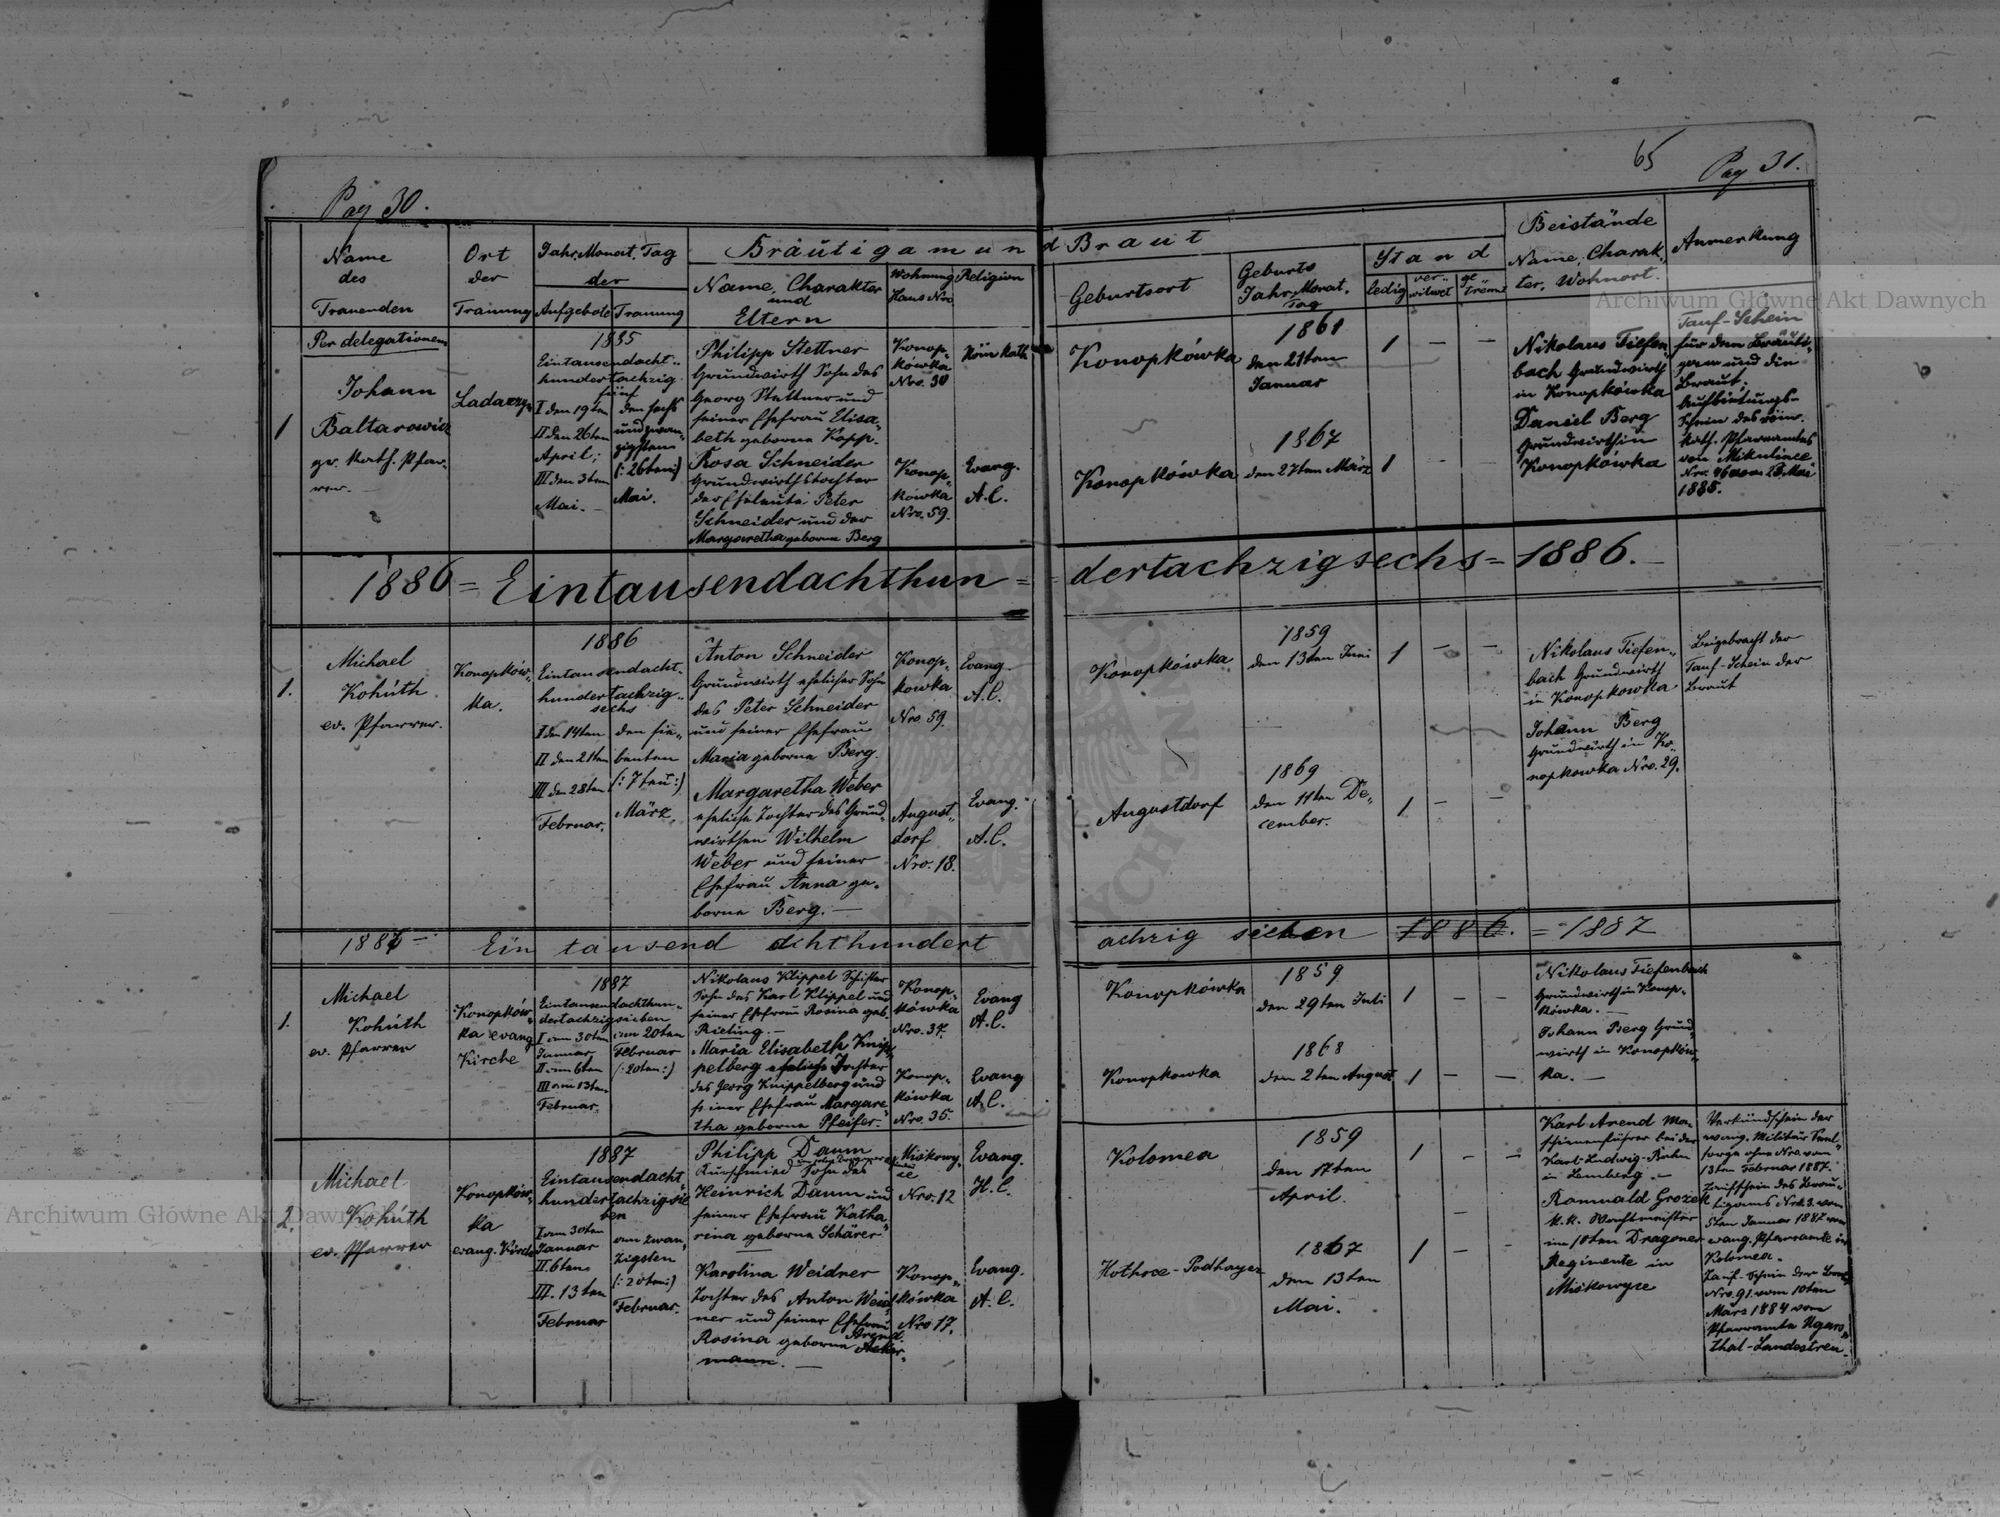 Pag 30.
65
Pag 31.
Name des Trauenden
Ort der Trauung
Jahr, Monat, Tag der
Aufgebote
Trauung
Bräutigam und Braut
Name, Charakter und Eltern
Wohnung Haus Nro
Religion
Geburtsort
Geburts Jahr, Monat, Tag
Stand
ledig
ver-witwet
ge-trennt
Beistände
Name, Charak-
ter, Wohnort.
Anmerkung
Archiwum Główne Akt Dawnych
Per delegationem
1
Johann
Baltarowicz
gr. kath. Pfar-
rer.
1885
Eintausendacht-
hundertachzig
fünf
I den 19ten
II den 26ten
April;
III den 3ten
Mai.
den sechs
undzwan-
zigsten
(: 26ten :)
Mai.
Philipp Stettner
Grundwirth Sohn des
Georg Stettner und
seiner Ehefrau Elisa-
beth geborne Kopp.
Konop-
kówka
Nro. 30
Röm Kath
Konopkówka
1861
den 21ten
Januar
1 — —
Rosa Schneider
Grundwirthstochter
der Eheleute Peter
Schneider und der
Margaretha geborne Berg
Konop-
kowka
Nro. 59.
Evang.
A. C.
Konopkówka
1867
den 27ten März
1 — —
Nikolaus Tiefen-
bach Grundwirth
in Konopkówka
Daniel Berg
Grundwirth in
Konopkówka
Tauf-Schein
für den Bräuti-
gam und die
Braut;
Aufbietungs-
Schein des röm.
kath. Pfarramtes
von Mikulince
1885.
1886 = Eintausendachthun = dertachzigsechs = 1886.
1.
Michael
Kohúth
ev. Pfarrer.
Konopków-
ka.
1886
Eintausendacht-
hundertachzig-
sechs
I den 14ten
II den 21ten
III den 28ten
Februar.
den sie-
benten
(: 7ten :)
März.
Anton Schneider
Grundwirth ehelicher Sohn
des Peter Schneider
und seiner Ehefrau
Maria geborne Berg.
Konop-
kowka
Nro. 59
Evang.
A. C.
Konopkówka
1859
den 13ten Juni
1 — —
Margaretha Weber
eheliche Tochter des Grund-
wirthen Wilhelm
Weber und seiner
Ehefrau Anna ge-
borne Berg. —
August-
dorf
Nro. 18.
Evang.
A. C.
Augustdorf
1869
den 11ten De-
cember.
1 — —
Nikolaus Tiefen-
bach Grundwirth
in Konopkowka
Johann Berg
Grundwirth in Ko-
nopkowka Nro. 29.
Beigebracht der
Tauf-Schein der
Braut
1887 — Ein tausend achthundert achzig sieben 1886. = 1887
1.
Michael
Kohúth
ev. Pfarrer
Konopków-
ka evang
Kirche
1887
Eintausendachthun-
dertachzigsieben
I am 30ten
Januar
II am 6ten
III am 13ten
Februar.
am 20ten
Februar
(: 20ten :)
Nikolaus Klippel Schister
Sohn des Karl Klippel und
seiner Ehefrau Rosina geb.
Rieling. —
Konop-
kówka
Nro. 37.
Evang
A. C.
Konopkówka
1859
den 29ten Juli
1 — —
Maria Elisabeth Knip-
pelberg eheliche Tochter
des Georg Knippelberg und
seiner Ehefrau Margare-
tha geborne Pfeifer.
Konop-
kówka
Nro. 35.
Evang
A. C.
Konopkowka
1868
den 2ten August
1 — —
Nikolaus Tiefenbach
Grundwirth in Konop-
kówka. —
Johann Berg Grund-
wirth in Konopków-
ka. —
2.
Michael
Kohúth
ev. Pfarrer
Konopków-
ka
evang. Kirche
1887
Eintausendacht-
hundertachzigsie-
ben
I am 30ten
Januar
II. 6ten
III. 13ten
Februar
am zwan-
zigsten
(: 20ten :)
Februar.
Philipp Daum
Kurschmied
Sohn des
Heinrich Daum und
seiner Ehefrau Katha-
rina geborne Schärer
Nro. 12
Evang.
H. C.
Kolomea
1859
den 17ten
April.
1 — —
Karolina Weidner
Tochter des Anton Weid-
ner und seiner Ehefrau
Rosina geborne Arend.
Konop-
kówka
Nro 17.
Evang.
A. C.
Hothoce-Podhayce
1867
den 13ten
Mai.
1 — —
Karl Arend Ma-
schinenführer bei der
Karl-Ludwig-Bahn
in Lemberg —
Romuald Grożek
k. k. Wachtmeister
im 10ten Dragoner
Regimente in
Miśkowyce
Verkündschein der
evang. Militär Seel-
sorge ohne Nro. vom
13ten Februar 1887.
Taufschein des Bräu-
tigams Nro. 3. vom
5ten Januar 1887 vom
evang. Pfarramte in
Kolomea.
Tauf-Schein der Braut
Nro. 91 vom 10ten
März 1884 vom
Pfarramte Ugars-
thal-Landestreu.
Archiwum Główne Akt Dawnych